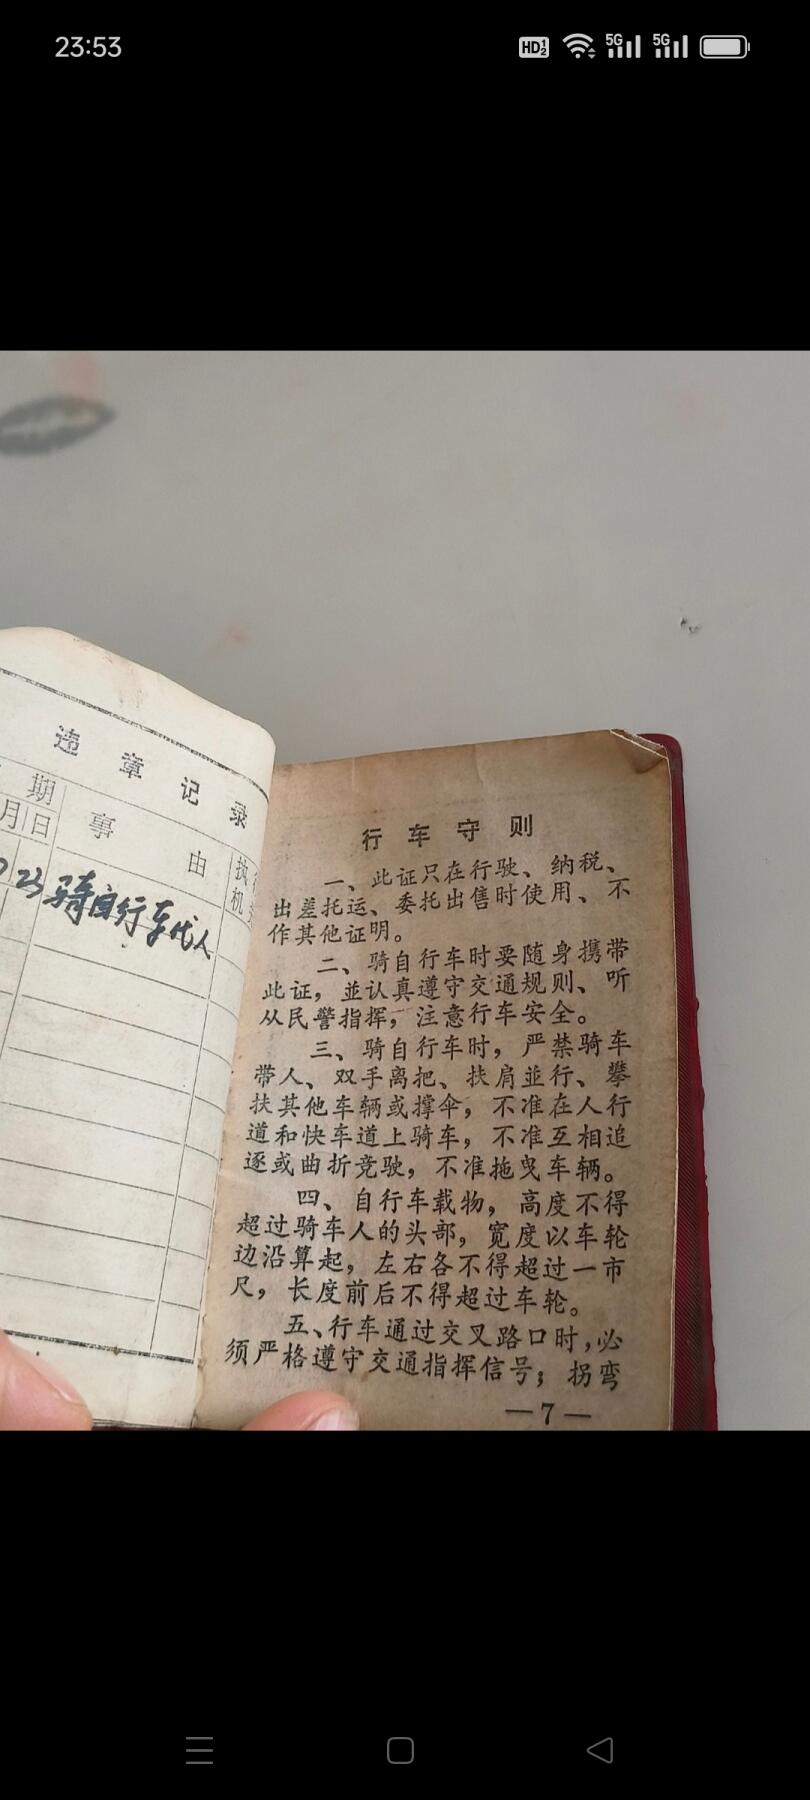 23:53
HD 1 2
5G
5G
违章记录
期
月 日
事由
执
机
23 骑自行车代人
行车守则
一、此证只在行驶、纳税、
出差托运、委托出售时使用、不
作其他证明。
二、骑自行车时要随身携带
此证，並认真遵守交通规则、听
从民警指挥，注意行车安全。
三、骑自行车时，严禁骑车
带人、双手离把、扶肩並行、攀
扶其他车辆或撑伞，不准在人行
道和快车道上骑车，不准互相追
逐或曲折竞驶，不准拖曳车辆。
四、自行车载物，高度不得
超过骑车人的头部，宽度以车轮
边沿算起，左右各不得超过一市
尺，长度前后不得超过车轮。
五、行车通过交叉路口时，必
须严格遵守交通指挥信号；拐弯
—7—